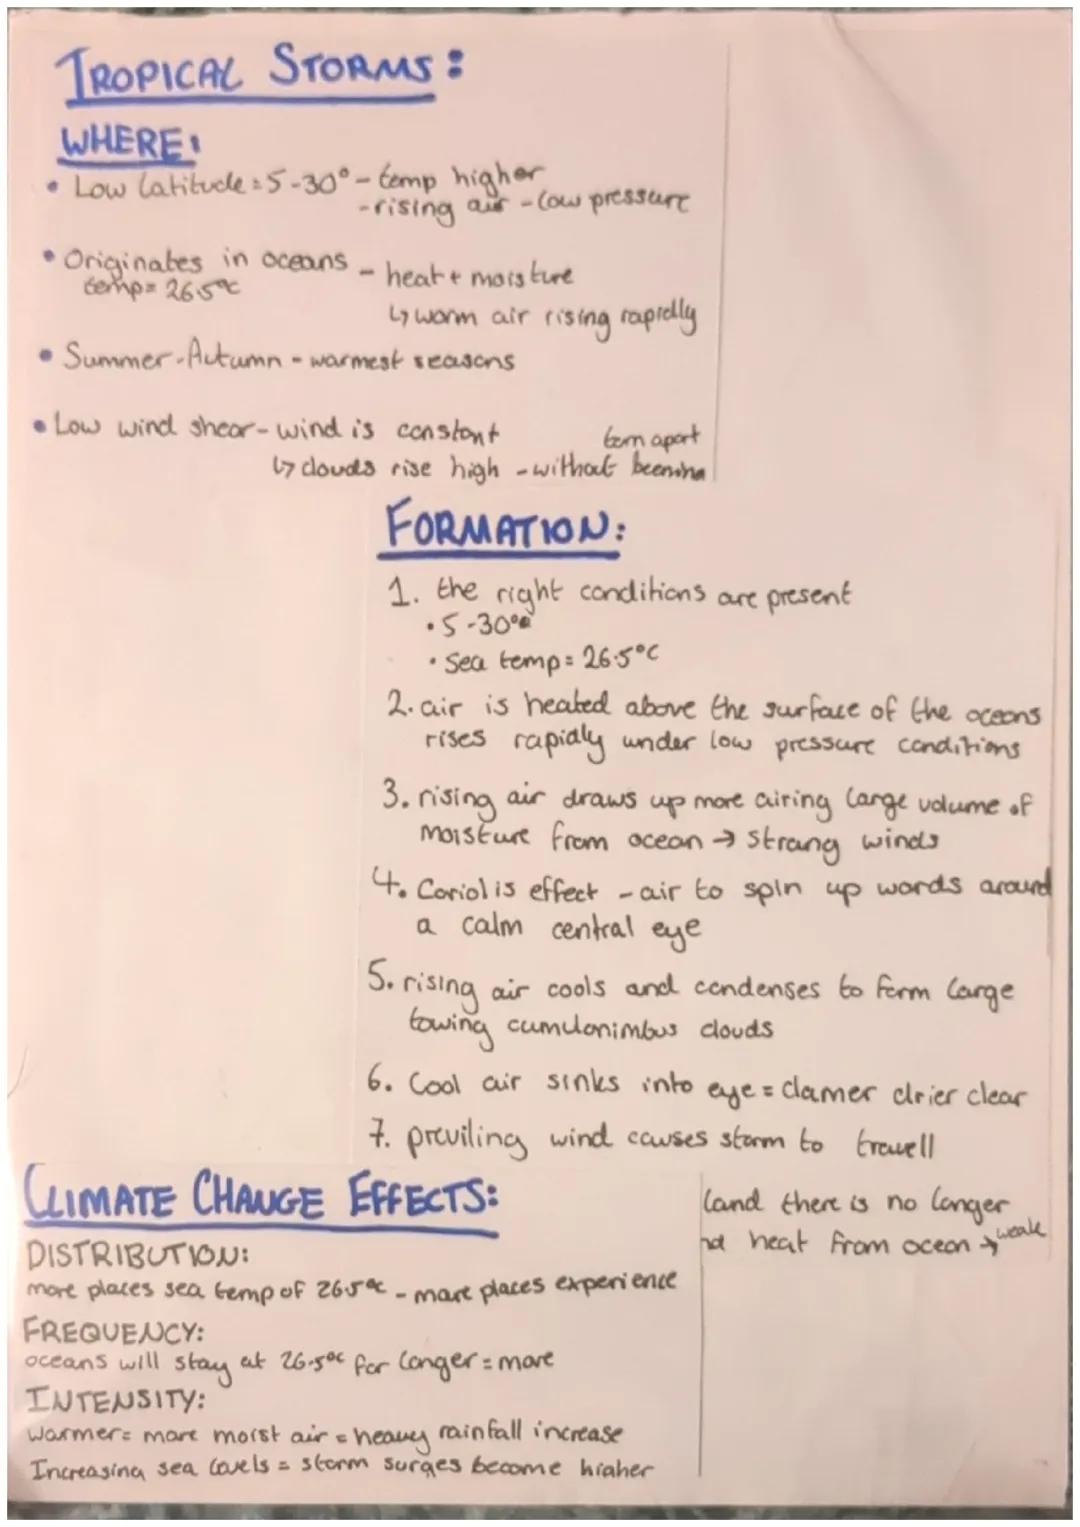 TROPICAL STORMS:
WHERE:
• Low latitude = 5-30° - temp higher
- rising air - low pressure
• Originates in oceans - heat + moisture
temp = 26.5°C
↳ warm air rising rapidly
• Summer - Autumn - warmest seasons
• Low wind shear - wind is constant
torn apart
↳ clouds rise high - without beening
FORMATION:
1. the right conditions are present
• 5-30°
• Sea temp = 26.5°C
2. air is heated above the surface of the oceans
rises rapidly under low pressure conditions
3. rising air draws up more airing large volume of
moisture from ocean → strong winds
4. Coriolis effect - air to spin up words around
a calm central eye
5. rising air cools and condenses to form large
towing cumulonimbus clouds
6. Cool air sinks into eye = clamer drier clear
7. previling wind causes storm to travell
land there is no longer
heat from ocean → weak
CLIMATE CHANGE EFFECTS:
DISTRIBUTION:
more places sea temp of 26.5°C - more places experience
FREQUENCY:
oceans will stay at 26.5°C for longer = more
INTENSITY:
warmer = more moist air = heavey rainfall increase
Increasing sea lavels = storm surges become higher